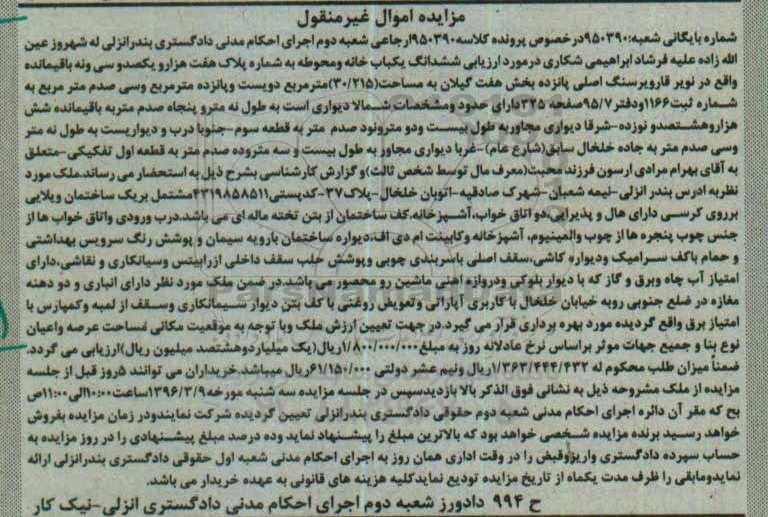 مزایده اموال غیرمنقول
شماره بایگانی شعبه:۹۵۰۳۹۰درخصوص پرونده کلاسه ۹۵۰۳۹۰ارجاعی شعبه دوم اجرای احکام مدنی دادگستری بندرانزلی له شهروز عین
الله زاده علیه فرشاد ابراهیمی شکاری درمورد ارزیابی ششدانگ یکباب خانه ومحوطه به شماره پلاک هفت هزارو یکصدو سی ونه باقیمانده
واقع در نویر قارویرسنگ اصلی پانزده بخش هفت گیلان به مساحت(۳۰/۲۱۵)مترمربع دویست وپانزده مترمربع وسی صدم متر مربع به
شماره ثبت۱۱۶۶ودفتر۹۵/۷صفحه ۳۲۵دارای حدود ومشخصات شمالا دیواری است به طول نه مترو پنجاه صدم متر به باقیمانده شش
هزاروهشتصدو نوزده-شرقا دیواری مجاوربه طول بیست ودو مترونود صدم متر به قطعه سوم-جنوبا درب و دیواریست به طول نه متر
وسی صدم متر به جاده خلخال سابق(شارع عام)-غربا دیواری مجاور به طول بیست و سه متروده صدم متر به قطعه اول تفکیکی-متعلق
به آقای بهرام مرادی ارسون فرزند محبت(معرف مال توسط شخص ثالث)و گزارش کارشناسی بشرح ذیل به استحضار می رساند.ملک مورد
نظربه ادرس بندر انزلی-نیمه شعبان-شهرک صادقیه-اتوبان خلخال-پلاک۳۷-کدپستی۴۳۱۹۸۵۸۵۱۱مشتمل بریک ساختمان ویلایی
برروی کرسی دارای هال و پذیرایی،دو اتاق خواب، آشپزخانه.کف ساختمان از بتن تخته ماله ای می باشد.درب ورودی واتاق خواب ها از
جنس چوب پنجره ها از چوب والمینیوم، آشپزخانه وکابینت ام دی اف،دیواره ساختمان بارویه سیمان و پوشش رنگ سرویس بهداشتی
و حمام باکف سرامیک ودیواره کاشی،سقف اصلی باسربندی چوبی وپوشش حلب سقف داخلی ازرابیتس وسیانکاری و نقاشی،دارای
امتیاز آب چاه وبرق و گاز که با دیوار بلوکی ودروازه آهنی ماشین رو محصور می باشد.در ضمن ملک مورد نظر دارای انباری و دو دهنه
مغازه در ضلع جنوبی روبه خیابان خلخال با کاربری آپاراتی وتعویض روغنی با کف بتن دیوار سیمانکاری وسقف از لمبه وکمپارس با
امتیاز برق واقع گردیده مورد بهره برداری قرار می گیرد.در جهت تعیین ارزش ملک وبا توجه به موقعیت مکانی مساحت عرصه واعیان
نوع بنا و جمیع جهات موثر براساس نرخ عادلانه روز به مبلغ۱/۸۰۰/۰۰۰/۰۰۰ریال(یک میلیاردوهشتصد میلیون ریال)ارزیابی می گردد.
ضمناً میزان طلب محکوم له ۱/۳۶۳/۴۴۴/۴۳۲ریال ونیم عشر دولتی ۶۱/۱۵۰/۰۰۰ریال میباشد.خریداران می توانند ۵روز قبل از جلسه
مزایده از ملک مشروحه ذیل به نشانی فوق الذکر بالا بازدیدسپس در جلسه مزایده سه شنبه مورخه ۱۳۹۶/۳/۹ساعت۱۰:۰۰الی۱۱:۰۰ص
بح که مقر آن دائره اجرای احکام مدنی شعبه دوم حقوقی دادگستری بندرانزلی تعیین گردیده شرکت نمایندودر زمان مزایده بفروش
خواهد رسید برنده مزایده شخصی خواهد بود که بالاترین مبلغ را پیشنهاد نماید وده درصد مبلغ پیشنهادی را در روز مزایده به
حساب سپرده دادگستری واریزوقبض را در وقت اداری همان روز به اجرای احکام مدنی شعبه اول حقوقی دادگستری بندرانزلی ارائه
نمایدومابقی را ظرف مدت یکماه از تاریخ مزایده تودیع نمایدکلیه هزینه های قانونی به عهده خریدار می باشد.
ح ۹۹۴ دادورز شعبه دوم اجرای احکام مدنی دادگستری انزلی-نیک کار